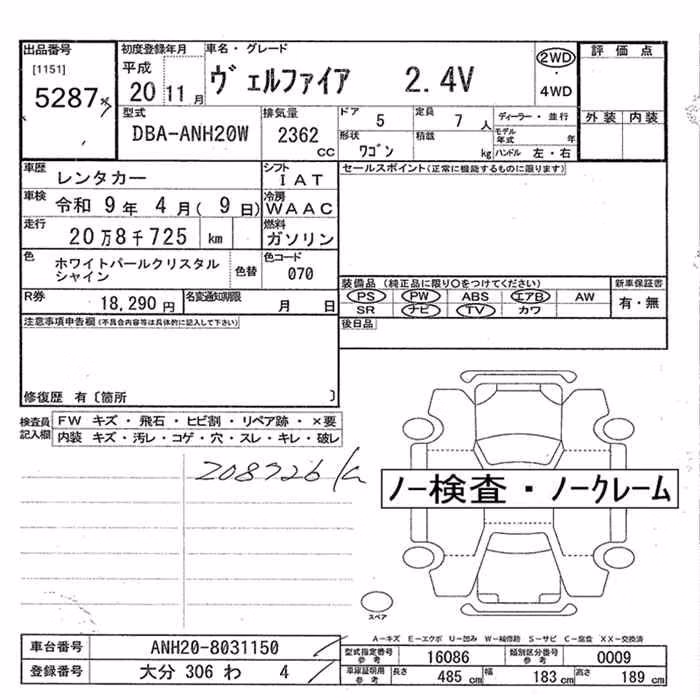 出品番号
[1151]
5287
初度登録年月
平成
20 11月
車名・グレード
ヴェルファイア 2.4V
2WD
・
4WD
評価点
外装 内装
型式
DBA-ANH20W
排気量
2362 CC
ドア
5
定員
7 人
形状
ワゴン
積載
kg
ディーラー・並行
モデル年式 年
ハンドル 左・右
車歴
レンタカー
シフト
IAT
車検
令和 9年 4月( 9日)
冷房
WAAC
走行
20万8千725 km
燃料
ガソリン
色
ホワイトパールクリスタル
シャイン
色替
色コード
070
R券
18,290 円
名変通知期限
月 日
セールスポイント(正常に機能するものに限ります)
装備品 (純正品に限り〇をつけてください)
PS PW ABS エアB AW
SR ナビ TV カワ
新車保証書
有・無
後日品
注意事項申告欄(不具合内容等は具体的に記入して下さい)
修復歴 有〔箇所 〕
検査員
記入欄
FW キズ・飛石・ヒビ割・リペア跡・×要
内装 キズ・汚レ・コゲ・穴・スレ・キレ・破レ
208726
ノー検査・ノークレーム
スペア
A-キズ E-エクボ U-凹み W-補修跡 S-サビ C-腐食 XX-交換済
車台番号 ANH20-8031150
登録番号 大分 306 わ 4
型式指定番号
参考
16086
類別区分番号
参考
0009
車庫証明用
参考
長さ 485 cm 幅 183 cm 高さ 189 cm